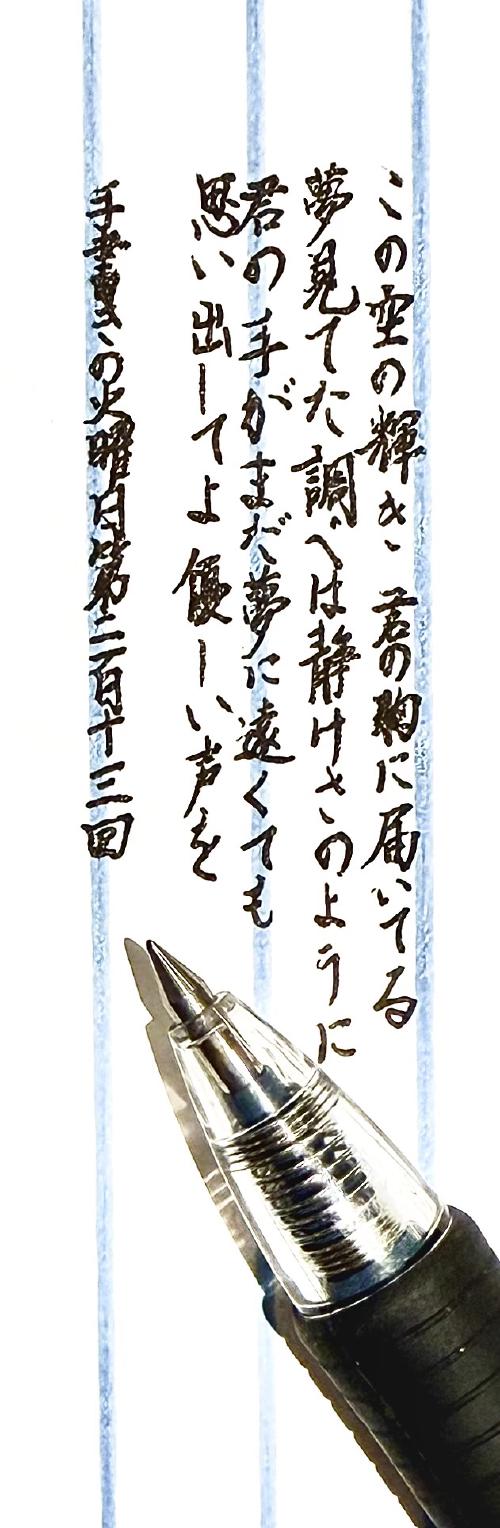 この空の輝き 君の胸に届いてる
夢見てた調べは静けさのように
君の手がまだ夢に遠くても
思い出してよ優しい声を
手書きの火曜日第二百十三回